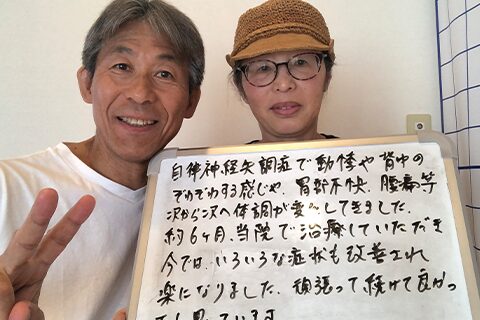 自律神経失調症で動悸や背中の
ぞわぞわする感じや、胃部不快、腰痛等
次から次へ体調が変化してきました。
約6ヶ月、当院で治療していただき
今では、いろいろな症状も改善され
楽になりました。頑張って続けて良かっ
たと思っています